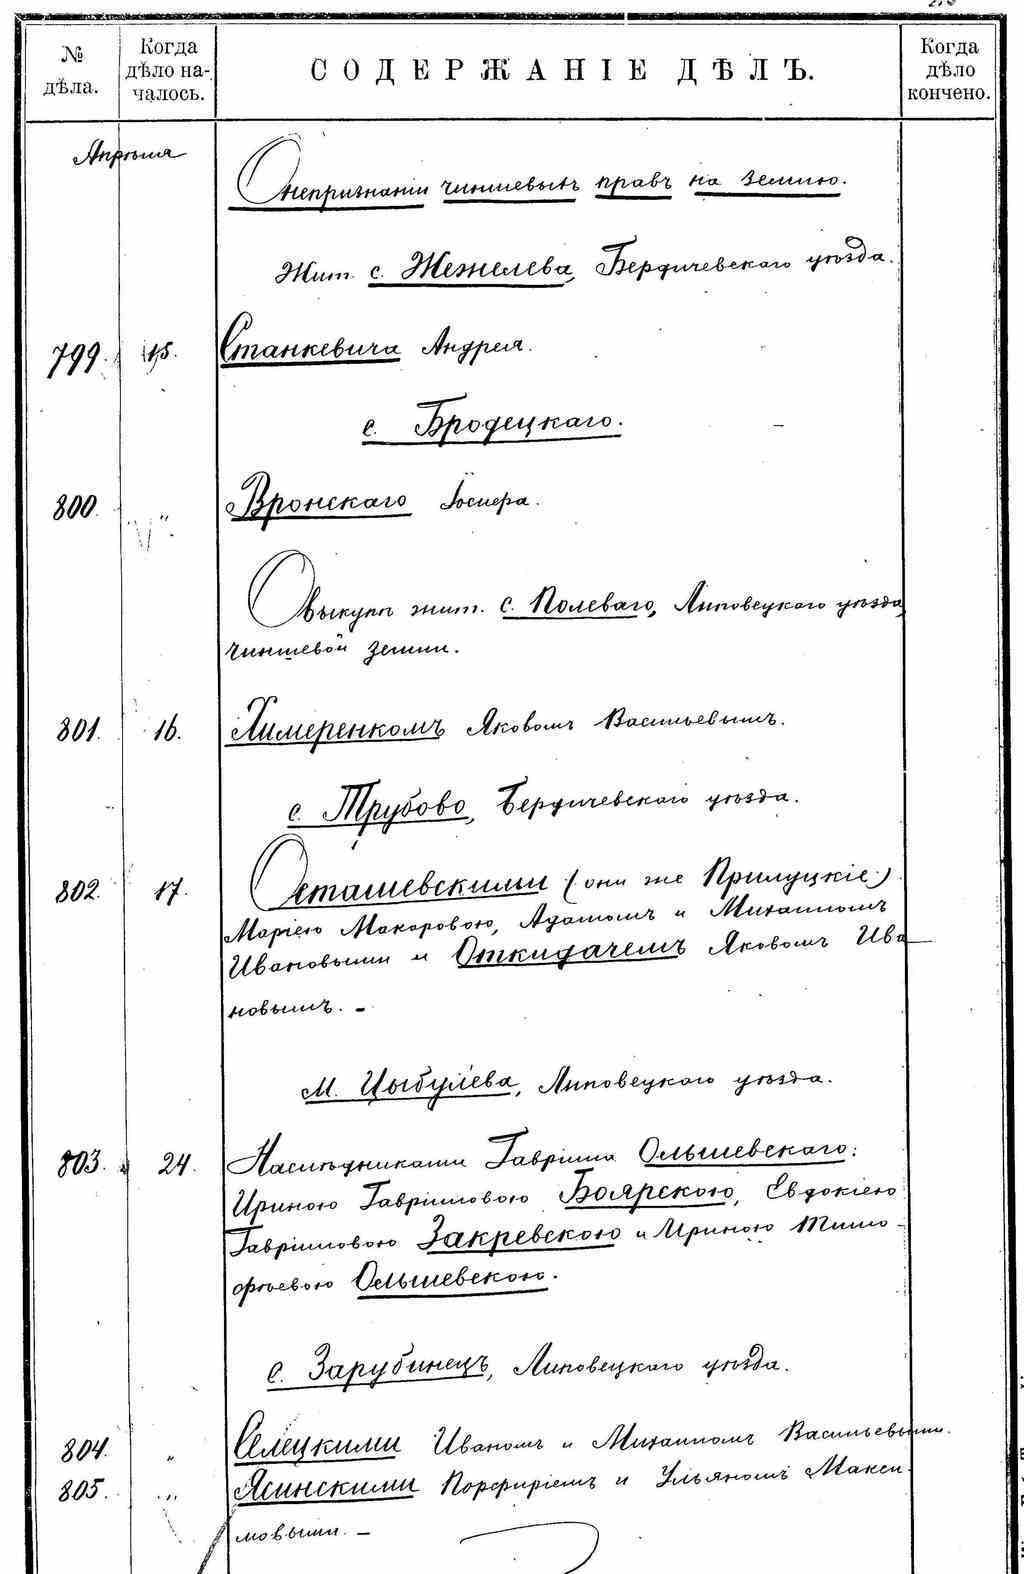 № дѣла.
Когда дѣло на-чалось.
СОДЕРЖАНІЕ ДѢЛЪ.
Когда дѣло кончено.
Апрѣля
О непризнаніи чиншевыхъ правъ на землю.
Жит. с. Жежелева, Бердичевскаго уѣзда.
799. 15. Станкевича Андрея.
с. Бродецкаго.
800. " Вронскаго Іосифа.
О выкупѣ жит. с. Полеваго, Липовецкаго уѣзда,
чиншевой земли.
801. 16. Химеренкомъ Яковомъ Васильевымъ.
с. Трубово, Бердичевскаго уѣзда.
802. 17. Осташевскими (они же Прилуцкіе)
Маріею Макаровою, Адамомъ и Михаиломъ
Ивановыми и Откидачемъ Яковомъ Ива
новымъ. –
М. Цыбулева, Липовецкаго уѣзда.
803. 24. Наслѣдниками Гавріила Ольшевскаго:
Ириною Гавріиловою Боярскою, Евдокіею
Гавріиловою Закревскою и Ириною Тимо-
фѣевою Ольшевскою.
с. Зарубинецъ, Липовецкаго уѣзда.
804. " Селецкими Иваномъ и Михаиломъ Васильевыми.
805. " Ясинскими Порфиріемъ и Ульяномъ Макси-
мовыми. –